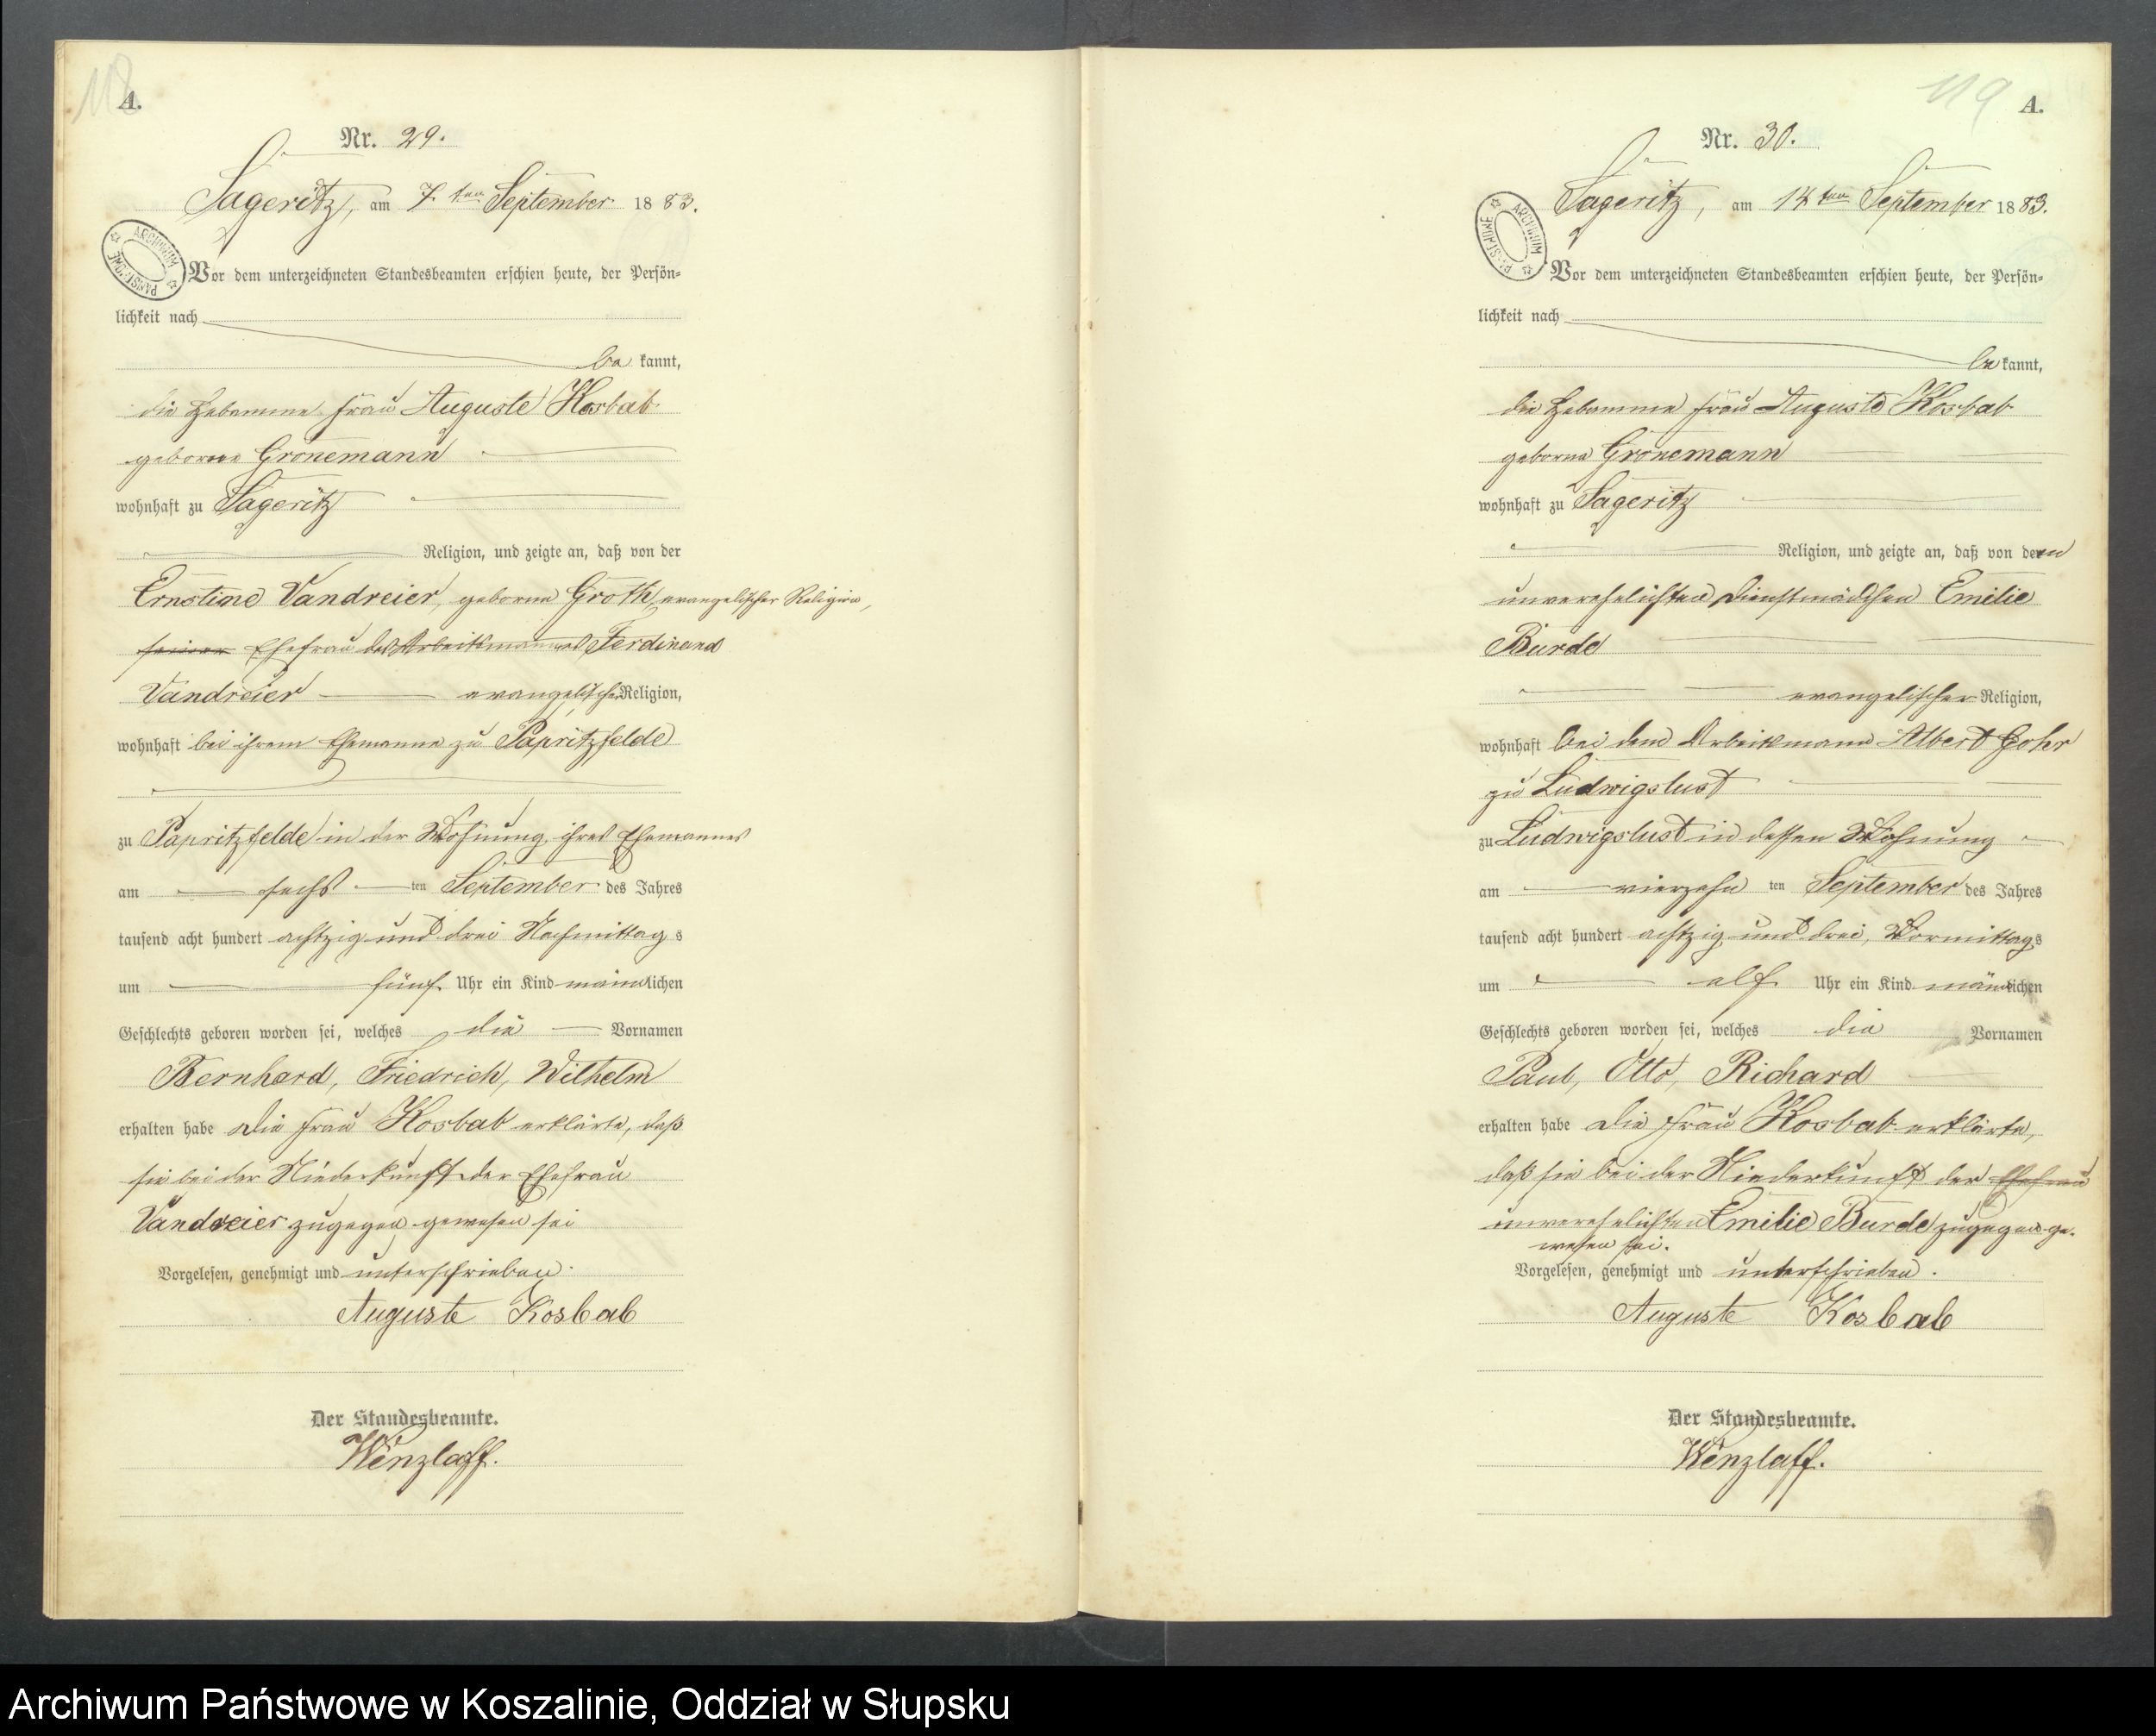 118
A.
Nr. 29.
Sageritz, am 7. ten September 1883.
ARCHIWUM PAŃSTWOWE
Vor dem unterzeichneten Standesbeamten erschien heute, der Persön-
lichkeit nach
be kannt,
die Hebamme Frau Auguste Kosbab
geborne Grönemann
wohnhaft zu Sageritz
Religion, und zeigte an, daß von der
Ernstine Vandreier, geborne Groth, evangelischer Religion,
seiner Ehefrau des Arbeitsmannes Ferdinand
Vandreier evangelischer Religion,
wohnhaft bei ihrem Ehemanne zu Papritzfelde
zu Papritzfelde in der Wohnung ihres Ehemannes
am sechs ten September des Jahres
tausend acht hundert achtzig und drei Nachmittag s
um fünf Uhr ein Kind männlichen
Geschlechts geboren worden sei, welches die Vornamen
Bernhard, Friedrich, Wilhelm
erhalten habe Die Frau Kosbab erklärte, daß
sie bei der Niederkunft der Ehefrau
Vandreier zugegen gewesen sei
Vorgelesen, genehmigt und unterschrieben.
Auguste Kosbab
Der Standesbeamte.
Wenzlaff.
119
A.
Nr. 30.
Sageritz, am 14 ten September 1883.
ARCHIWUM PAŃSTWOWE
Vor dem unterzeichneten Standesbeamten erschien heute, der Persön-
lichkeit nach
be kannt,
die Hebamme Frau Auguste Kosbab
geborne Grönemann
wohnhaft zu Sageritz
Religion, und zeigte an, daß von der
unverehelichten Dienstmädchen Emilie
Burde
evangelischer Religion,
wohnhaft bei dem Arbeitsmann Albert Gohr
zu Ludwigslust
zu Ludwigslust in dessen Wohnung
am vierzehn ten September des Jahres
tausend acht hundert achtzig und drei, Vormittags
um elf Uhr ein Kind männlichen
Geschlechts geboren worden sei, welches die Vornamen
Paul, Otto, Richard
erhalten habe Die Frau Kosbab erklärte,
daß sie bei der Niederkunft der Ehefrau
unverehelichten Emilie Burde zugegen ge-
wesen sei.
Vorgelesen, genehmigt und unterschrieben.
Auguste Kosbab
Der Standesbeamte.
Wenzlaff.
Archiwum Państwowe w Koszalinie, Oddział w Słupsku